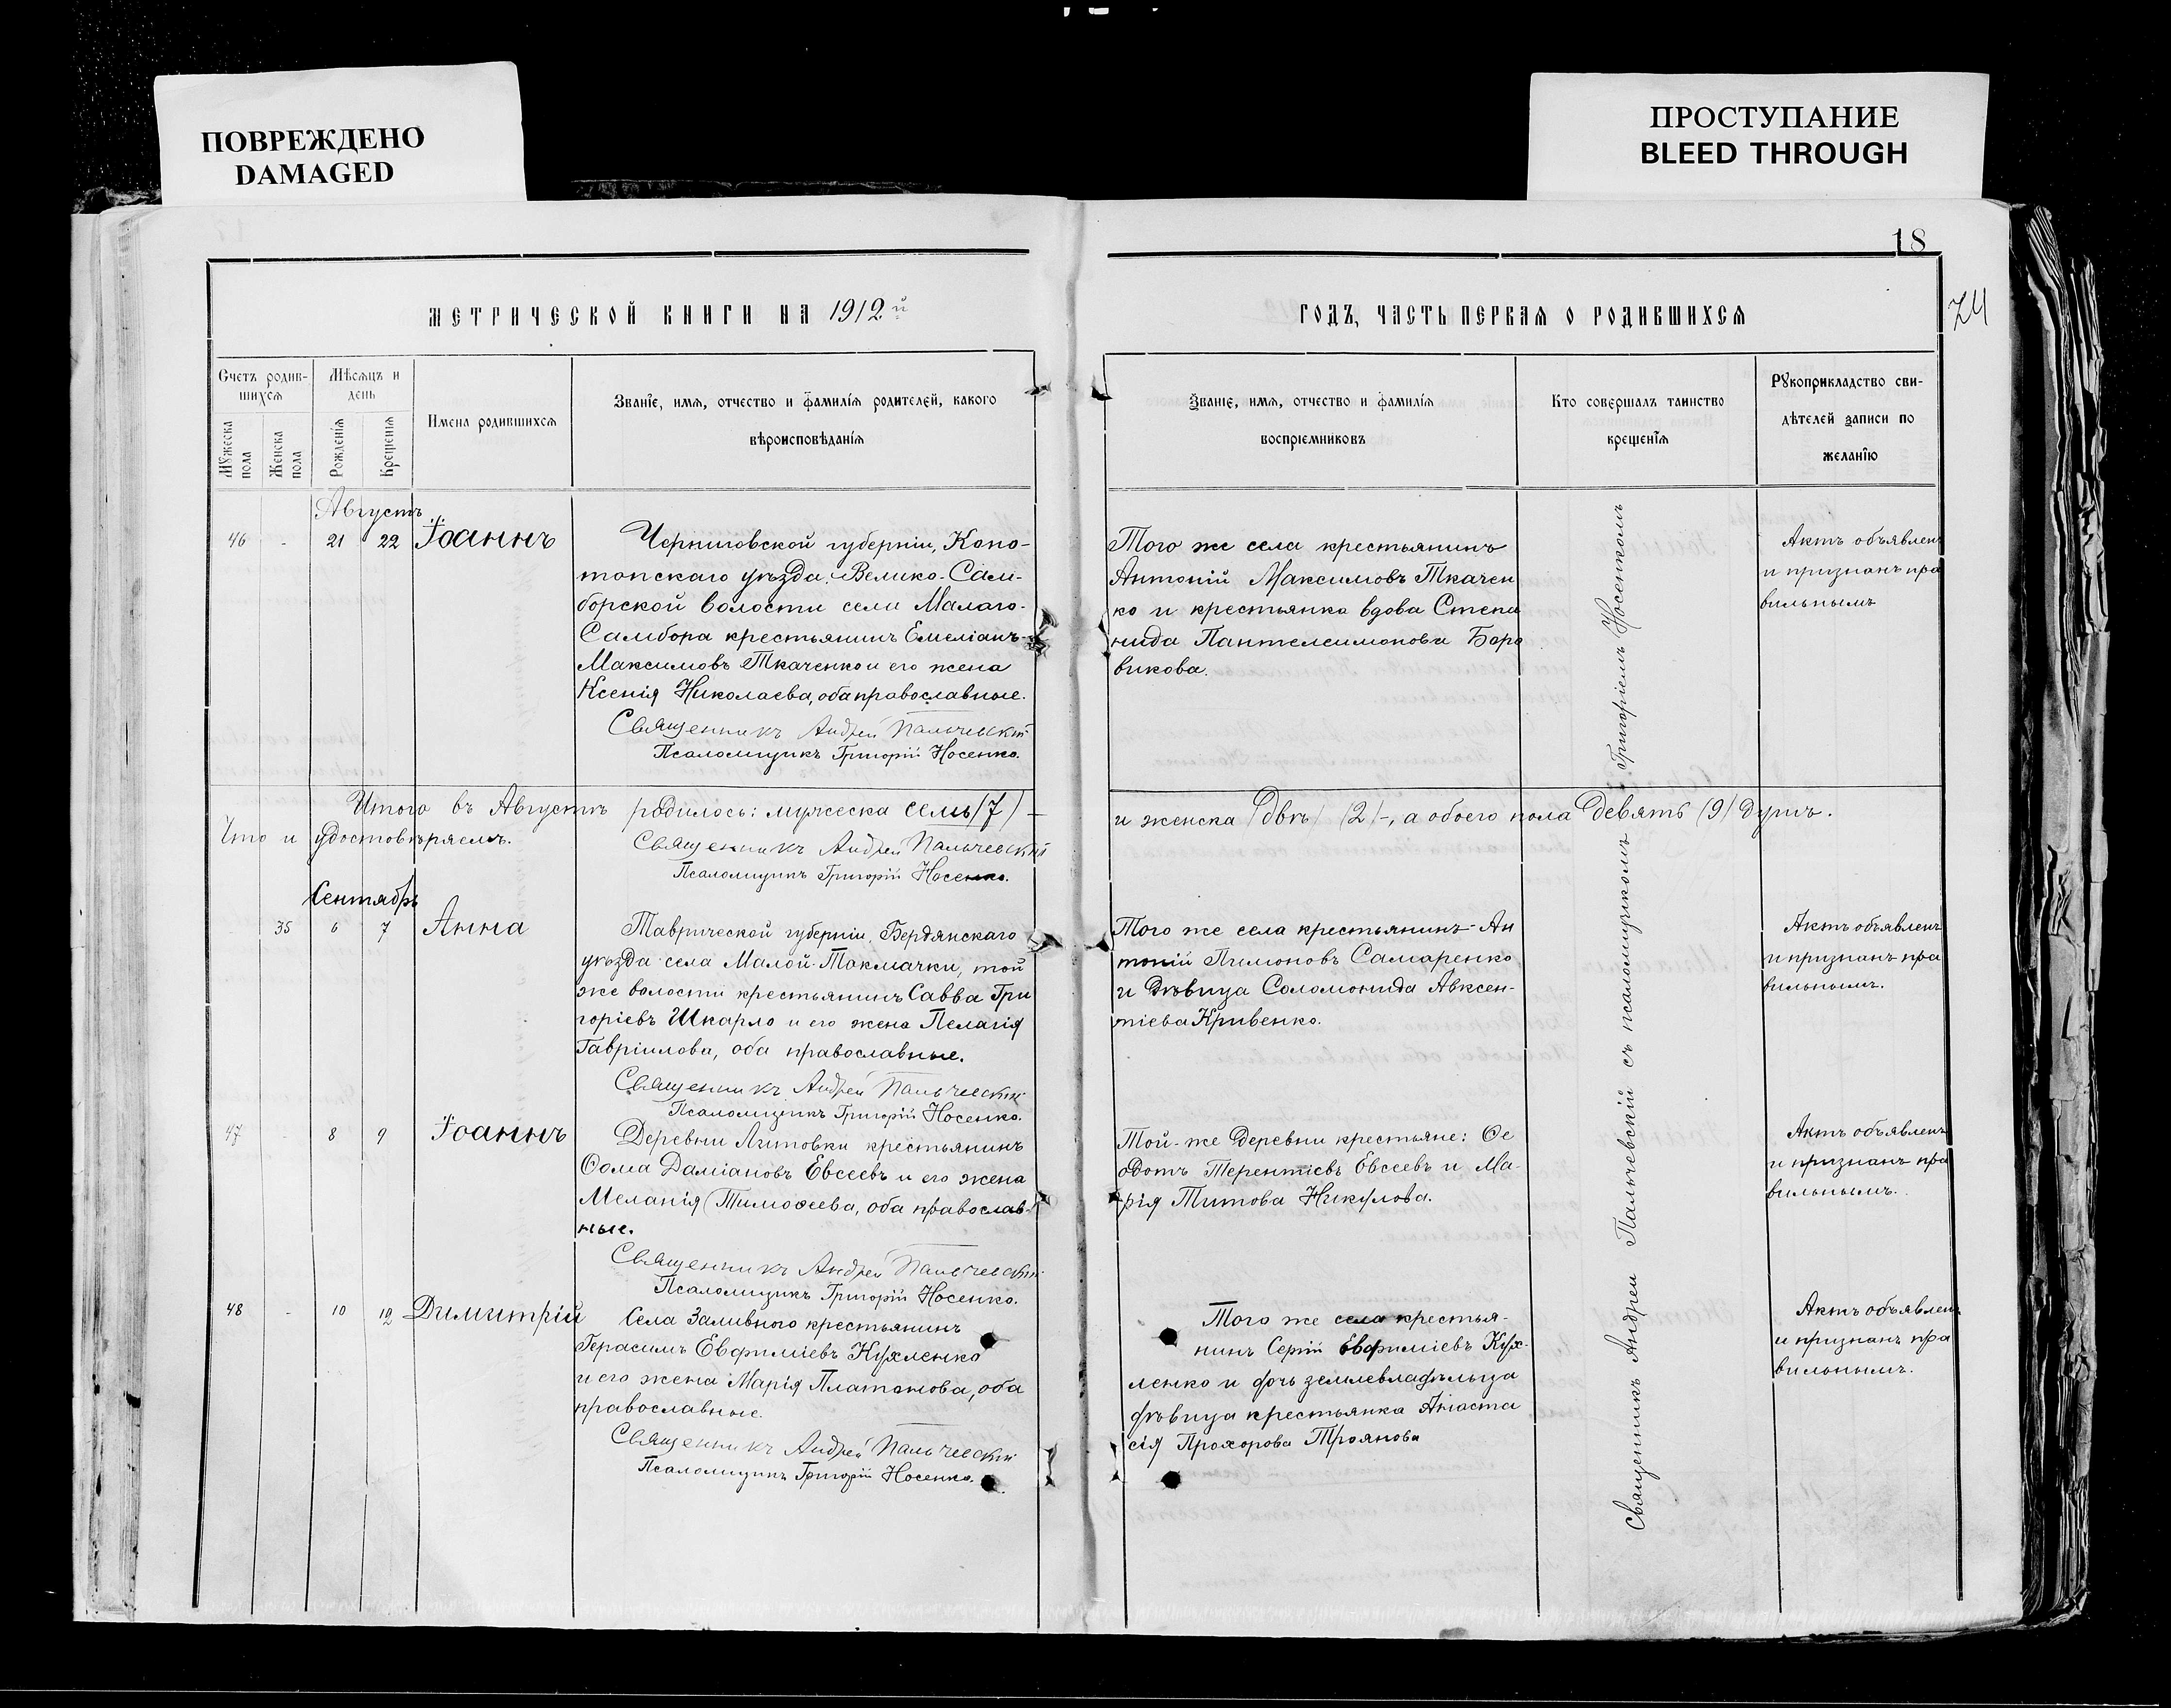 ПОВРЕЖДЕНО
DAMAGED
ПРОСТУПАНИЕ
BLEED THROUGH
18
24
МЕТРИЧЕСКОЙ КНИГИ НА 1912й
ГОДЪ, ЧАСТЬ ПЕРВАЯ О РОДИВШИХСЯ
Счетъ родив-
шихся
Мужеска пола
Женска пола
Мѣсяцъ и
день
Рожденія
Крещенія
Имена родившихся
Званіе, имя, отчество и фамилія родителей, какого
вѣроисповѣданія
Званіе, имя, отчество и фамилія
воспріемниковъ
Кто совершалъ таинство
крещенія
Рукоприкладство сви-
дѣтелей записи по
желанію
Августъ
46 - 21 22 Іоаннъ
Черниговской губерніи, Коно-
топскаго уѣзда, Велико-Сам-
борской волости села Малаго-
Самбора крестьянинъ Емеліанъ
Максимовъ Ткаченко и его жена
Ксенія Николаева, оба православные.
Священникъ Андрей Пальчевскій
Псаломщикъ Григорій Носенко.
Того же села крестьянинъ
Антоній Максимовъ Ткачен
ко и крестьянка вдова Степа
нида Пантелеимонова Боро
викова.
Актъ объявленъ
и признанъ пра
вильнымъ
Итого въ Августѣ родилось: мужеска семь (7) -
и женска двѣ (2) -, а обоего пола девять (9) душъ.
Что и удостовѣряемъ.
Священникъ Андрей Пальчевскій
Псаломщикъ Григорій Носенко.
Сентябрь
35 6 7 Анна
Таврической губерніи, Бердянскаго
уѣзда села Малой-Токмачки, той
же волости крестьянинъ Савва Гри
горіевъ Шкарло и его жена Пелагія
Гавріилова, оба православные.
Священникъ Андрей Пальчевскій
Псаломщикъ Григорій Носенко.
Того же села крестьянинъ Ан
тоній Пимоновъ Самаренко
и дѣвица Соломонида Авксен-
тіева Кривенко.
Актъ объявленъ
и признанъ пра
вильнымъ.
47 - 8 9 Іоаннъ
Деревни крестьянинъ
Ѳома Даміановъ Евсеевъ и его жена
Меланія Тимоѳеева, оба православ-
ные.
Священникъ Андрей Пальчевскій
Псаломщикъ Григорій Носенко.
Той-же деревни крестьяне: Ѳе
одотъ Терентіевъ Евсеевъ и Ма-
рія Титова Никулова.
Актъ объявленъ
и признанъ пра
вильнымъ.
48 - 10 12 Димитрій
Села Заливного крестьянинъ
Герасимъ Евфиміевъ Кухленко
и его жена Марія Платонова, оба
православные.
Священникъ Андрей Пальчевскій
Псаломщикъ Григорій Носенко.
Того же села крестья-
нинъ Сергій Евфиміевъ Кух-
ленко и дочь землевладѣльца
дѣвица крестьянка Анаста
сія Прохорова Троянова
Актъ объявленъ
и признанъ пра
вильнымъ.
Священникъ Андрей Пальчевскій съ псаломщикомъ Григоріемъ Носенкомъ